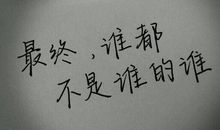 最终，谁都
不是谁的谁